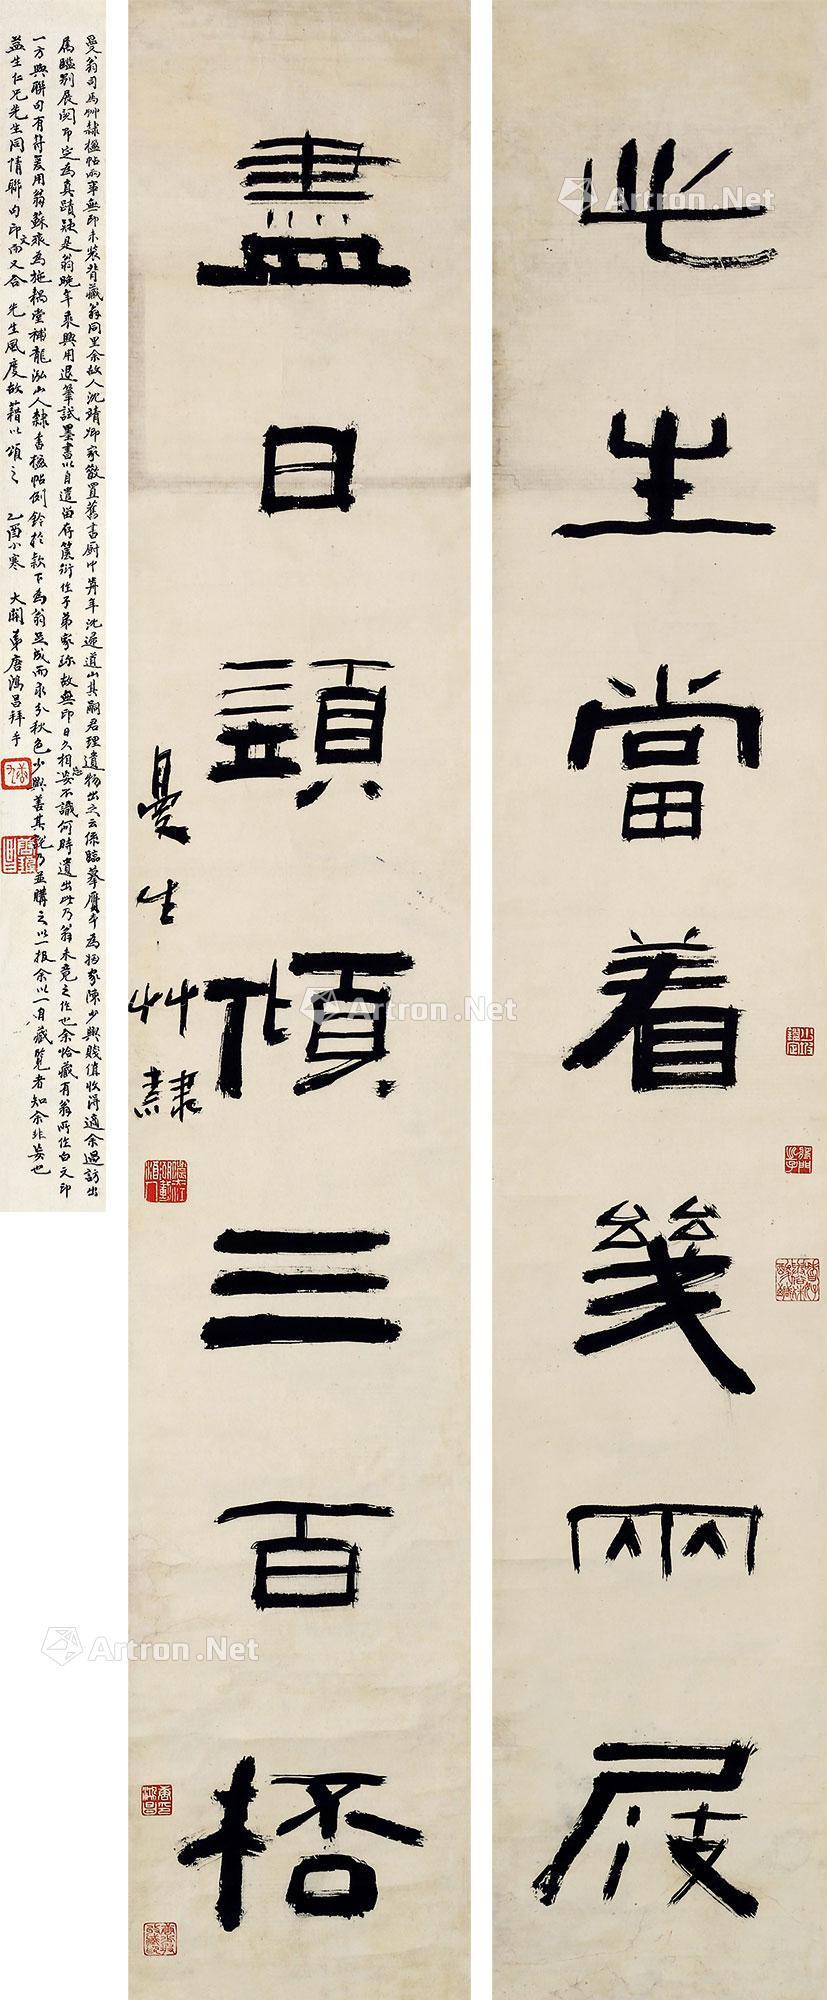 此生當着幾兩屐
盡日須傾三百桮
曼生艸隸
曼翁司馬艸隸楹帖兩事無印未裝背藏翁同里余故人沈靖卿家散置舊書廚中昇年沈遊道山其嗣君理遺物出之云係臨摹贋本為估家陳少興賤值收得適余過訪出
属鑑別展閱即定為真蹟疑是翁晚年乘興用退筆試墨書以自遣留存篋衍任子弟家珍故無印日久相忘不識何時遺出此乃翁未竟之作也余恰藏有翁所作白文印
一方與聯句有符爰用翁蘇珠為施耦堂補龍泓山人隸書楹帖例鈐於款下為翁足成而永分秋色少興善其說乃並購之以一报余以一自藏覽者知余非妄也
益生仁兄先生同情聯句印文而又合 先生風度故藉以頌之 乙酉小寒 大開弟唐鴻昌拜手
Artron.Net
Artron.Net
Artron.Net